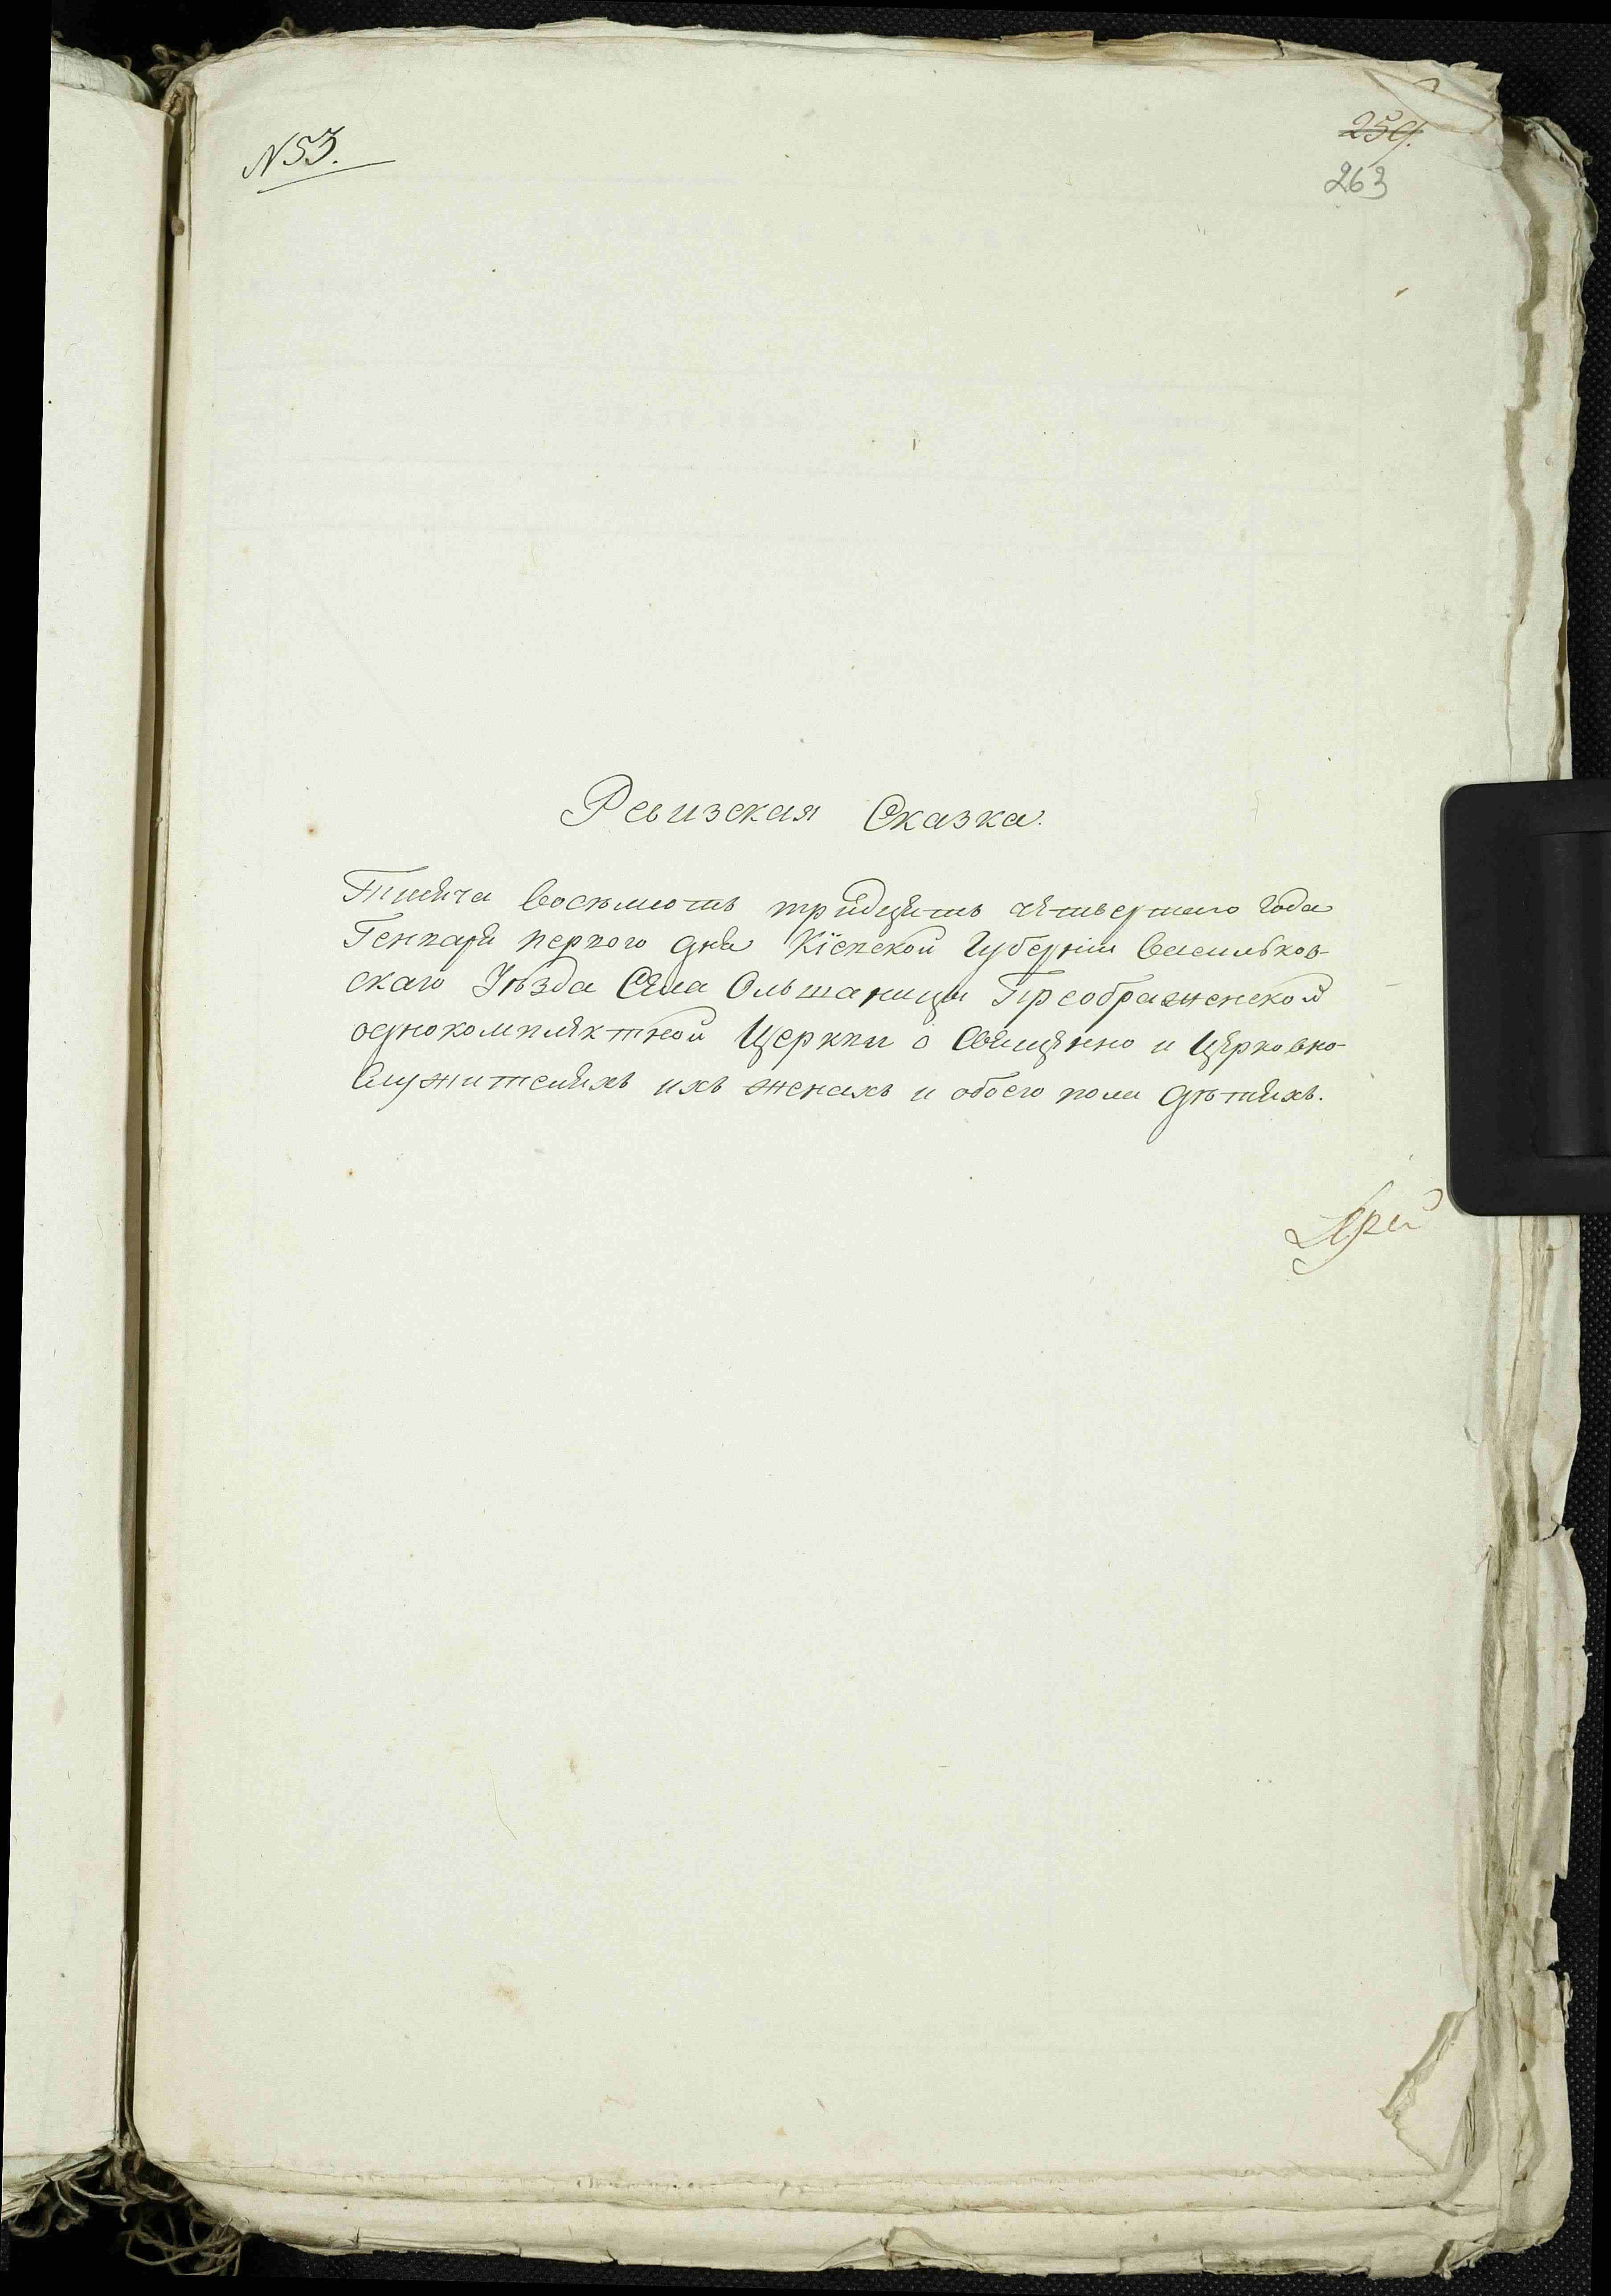 N 53.
259.
263
Ревизская Сказка.
Тисяча восемьсотъ тридцять четвертаго года
Генваря первого дня Кіевской Губерніи Васильков-
скаго Уѣзда Села Ольшаници Преображенской
однокомплектной Церкви о Священно и Церковно-
служителяхъ ихъ женахъ и обоего пола дѣтяхъ.